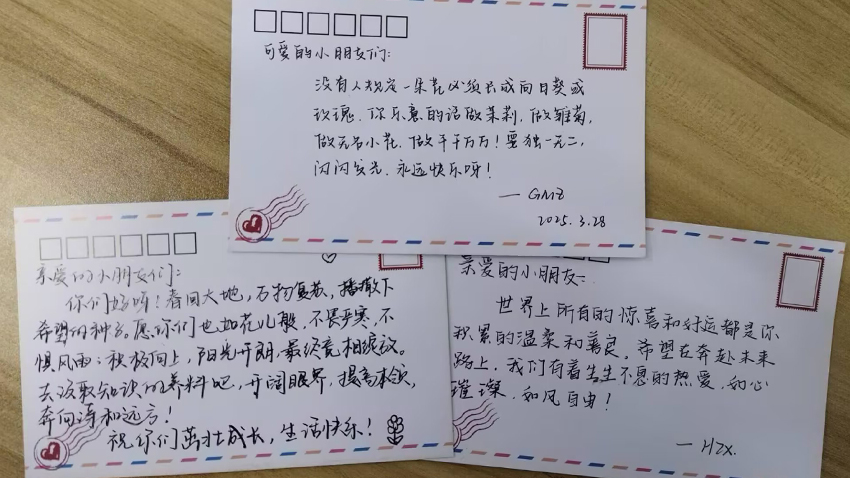 可爱的小朋友们:
没有人规定一朵花必须长成向日葵或
玫瑰.你乐意的话做茉莉,做雏菊,
做无名小花,做千千万万!要独一无二,
闪闪发光,永远快乐呀!
— GMZ
2025.3.28
亲爱的小朋友们:
你们好呀!春回大地,万物复苏,播撒下
希望的种子。愿你们也如花儿般,不畏严寒,不
惧风雨;积极向上,阳光开朗,最终竞相绽放。
去汲取知识的养料吧,开阔眼界,提高本领,
奔向诗和远方!
祝你们茁壮成长,生活快乐!
亲爱的小朋友:
世界上所有的惊喜和好运都是你
积累的温柔和善良。希望在奔赴未来
路上,我们有着生生不息的热爱,如心
璀璨,如风自由!
— HZX.